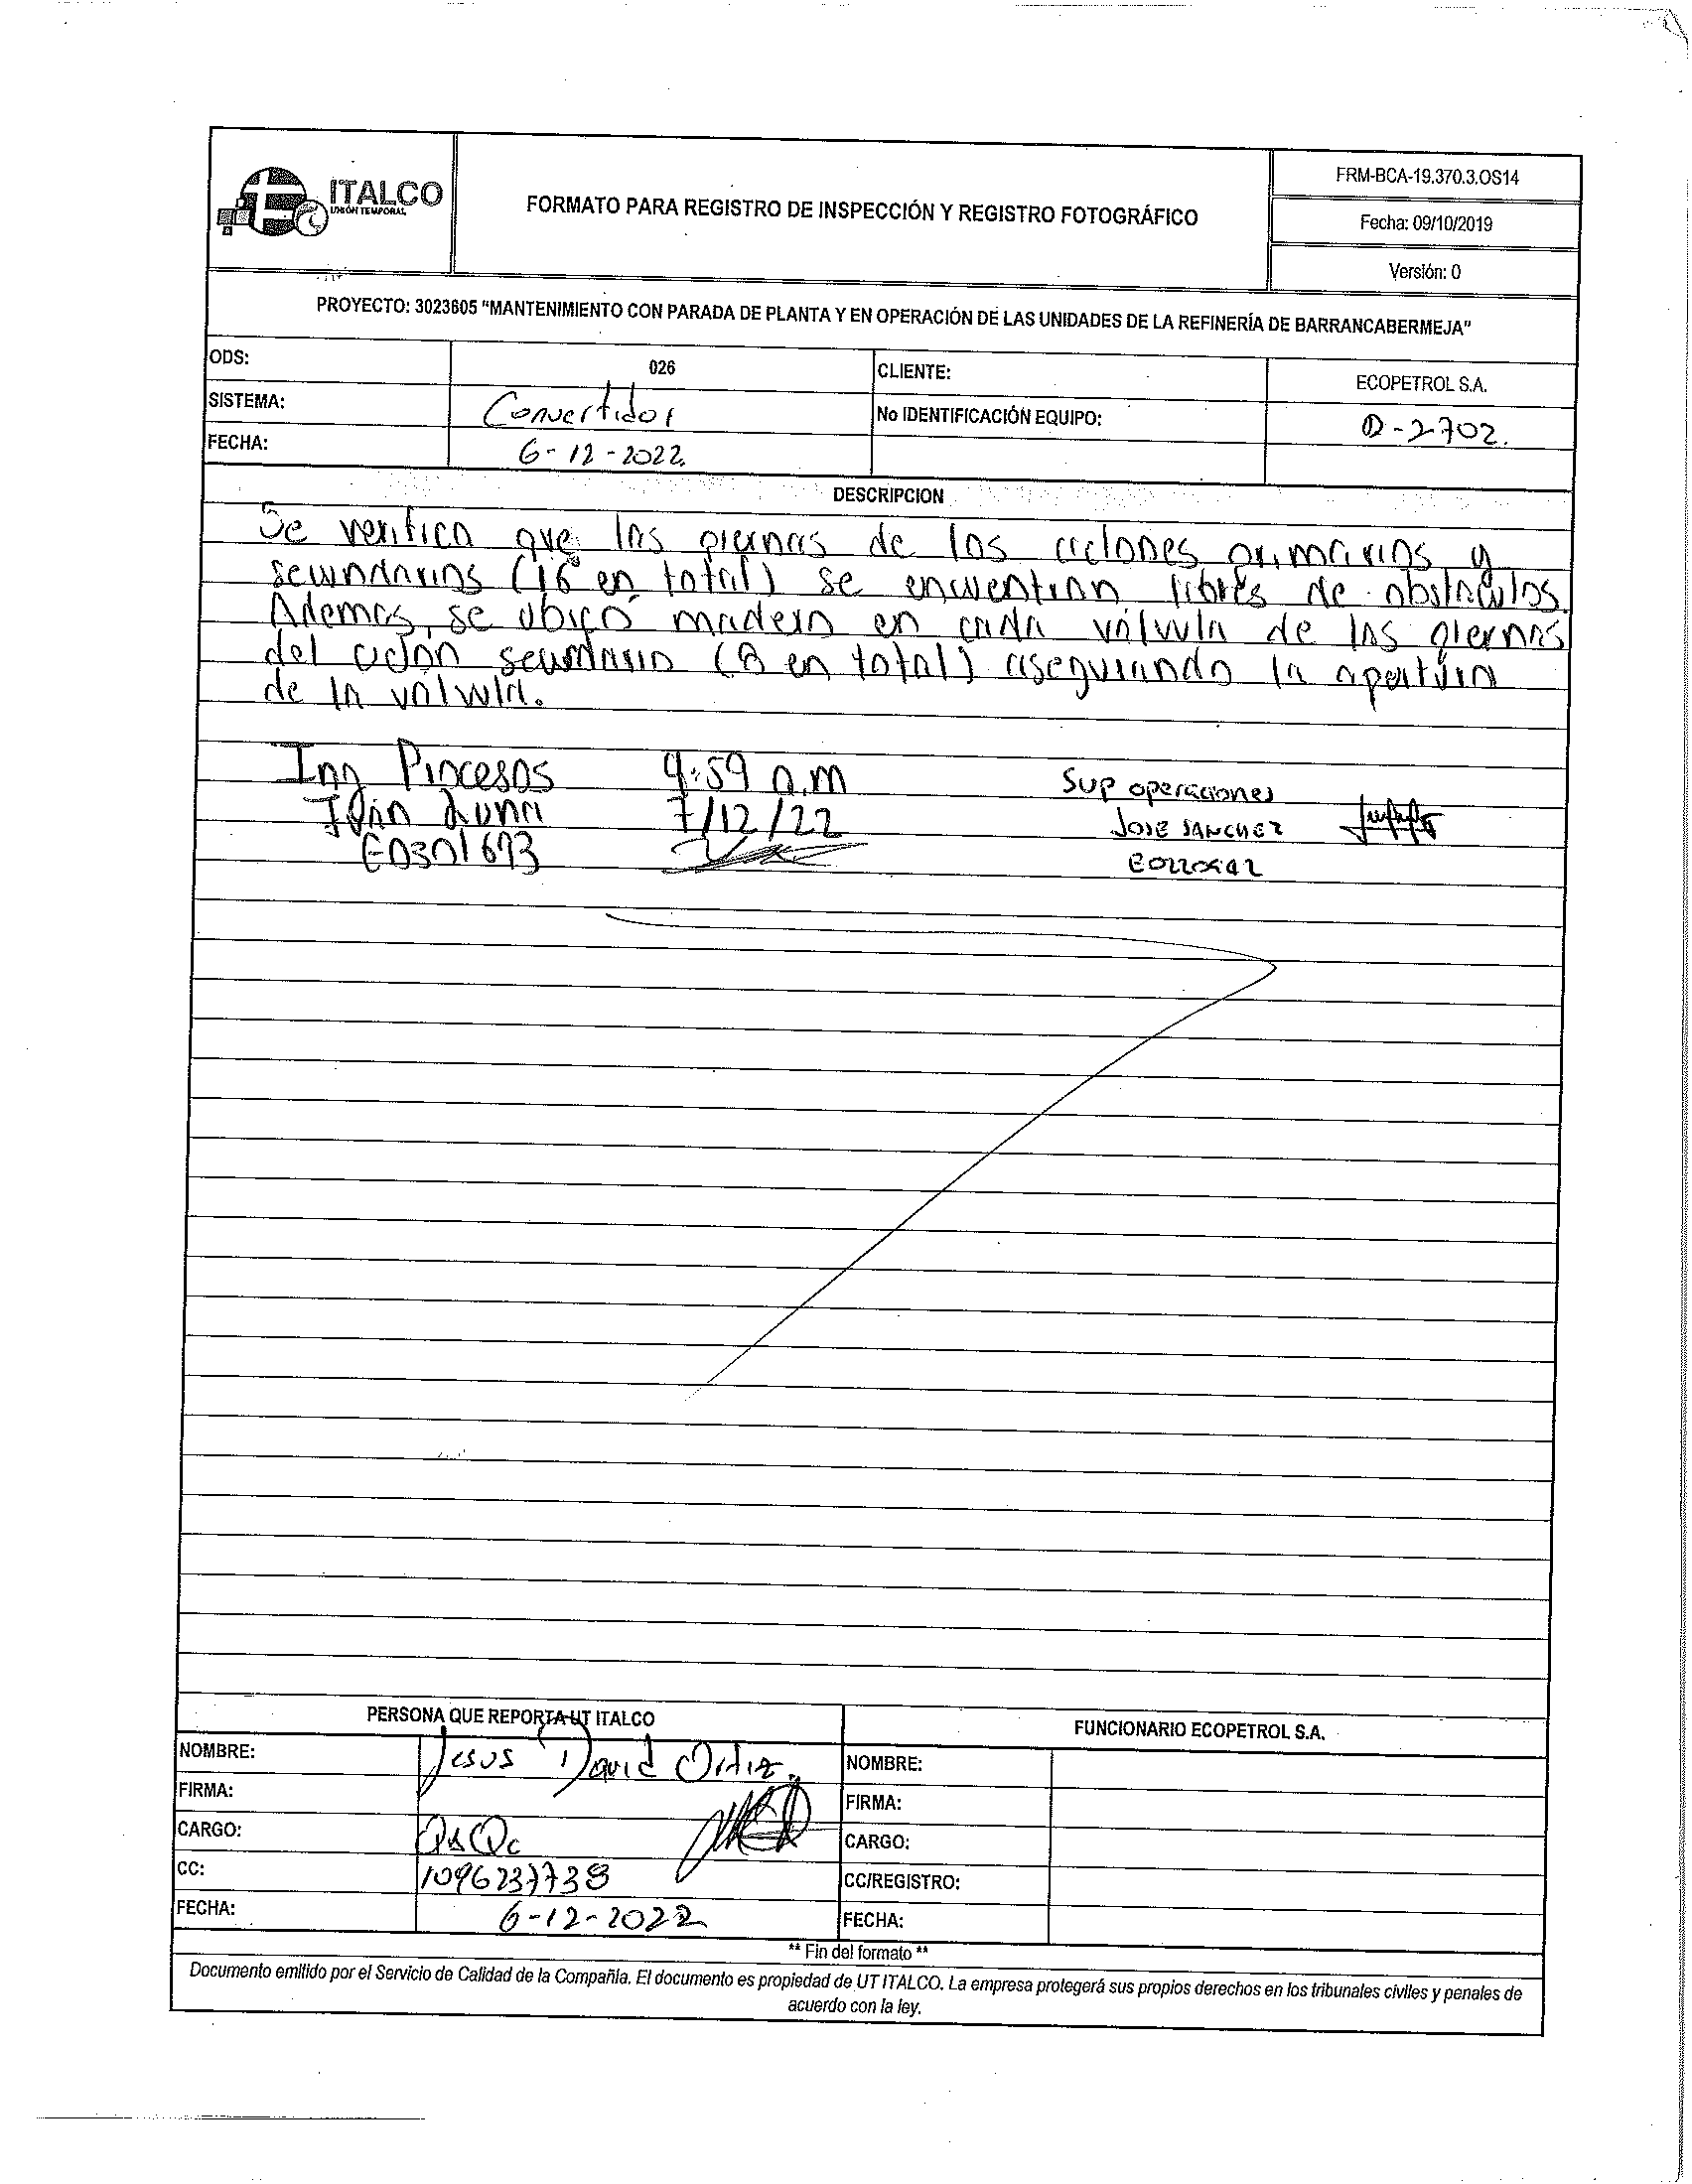 ITALCO
UNIÓN TEMPORAL
FORMATO PARA REGISTRO DE INSPECCIÓN Y REGISTRO FOTOGRÁFICO
FRM-BCA-19.370.3.OS14
Fecha: 09/10/2019
Versión: 0
PROYECTO: 3023605 "MANTENIMIENTO CON PARADA DE PLANTA Y EN OPERACIÓN DE LAS UNIDADES DE LA REFINERÍA DE BARRANCABERMEJA"
ODS: 026 CLIENTE: ECOPETROL S.A.
SISTEMA: Convertidor No IDENTIFICACIÓN EQUIPO: D-2702.
FECHA: 6-12-2022.
DESCRIPCION
Se verifica que las piernas de los ciclones primarios y
secundarios (16 en total) se encuentran libres de obstáculos.
Ademas, se ubicó madera en cada válvula de las piernas
del ciclón secundario (8 en total) asegurando la apertura
de la válvula.
Ing Procesos 9:59 a.m Sup operaciones
Iván Luna 7/12/22 JOSE SANCHEZ
E0301693
PERSONA QUE REPORTA UT ITALCO FUNCIONARIO ECOPETROL S.A.
NOMBRE: Jesus David Ortiz. NOMBRE:
FIRMA: FIRMA:
CARGO: QAQc CARGO:
CC: 1096237738 CC/REGISTRO:
FECHA: 6-12-2022 FECHA:
** Fin del formato **
Documento emitido por el Servicio de Calidad de la Compañía. El documento es propiedad de UT ITALCO. La empresa protegerá sus propios derechos en los tribunales civiles y penales de
acuerdo con la ley.